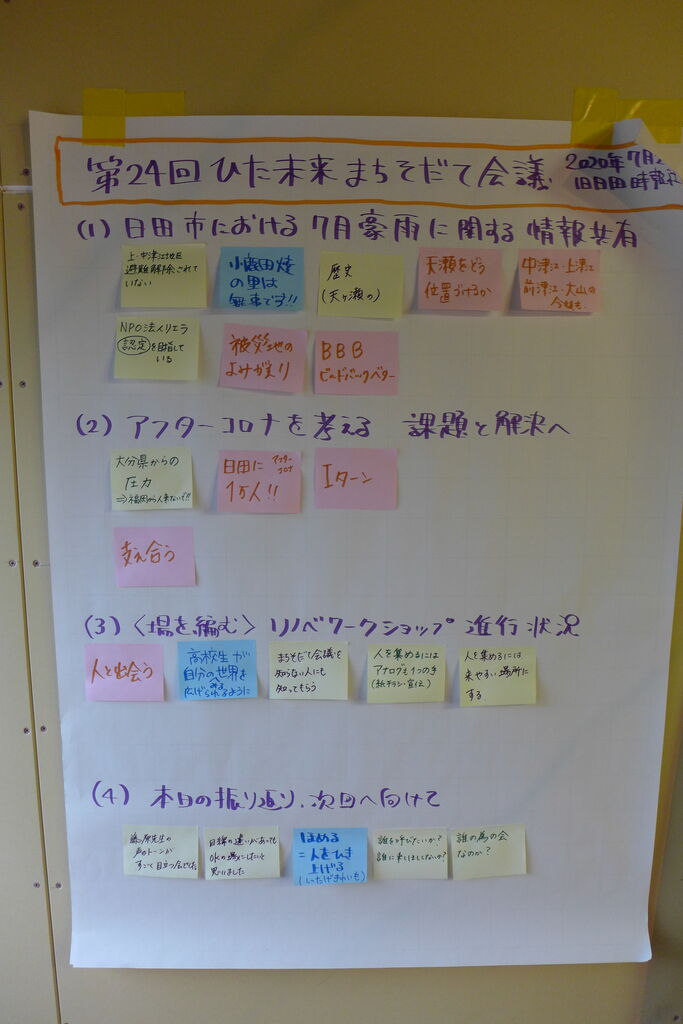 第24回ひた未来まちそだて会議
2020年7月2
旧日田時報社
(1) 日田市における7月豪雨に関する情報共有
上・中津江地区
避難解除されて
いない
小鹿田焼
の里は
無事です!!
歴史
(天ヶ瀬の)
天瀬をどう
位置づけるか
中津江・上津江
前津江・大山の
今後も、
NPO法人リエラ
認定を目指して
いる
被災地の
よみがえり
BBB
ビルドバックベター
(2) アフターコロナを考える 課題と解決へ
大分県からの
圧力
⇒福岡から人来ないで!!
日田に アフターコロナ
1万人!!
Iターン
支え合う
(3) 〈場を編む〉リノベワークショップ 進行状況
人と出会う
高校生が
自分の世界を
広げられるように
まちそだて会議を
知らない人にも
知ってもらう
人を集めるには
アナログも1つの手
(紙チラシ・宣伝)
人を集めるには
来やすい場所に
する
(4) 本日の振り返り、次回へ向けて
藤原先生の
声のトーンが
すごく目立つ会でした
目線の違いがあっても
OKの場にしたいと
思いました
ほめる
=人をひき
上げる
誰を呼びたいか?
誰に来てほしくないか?
誰の為の会
なのか?